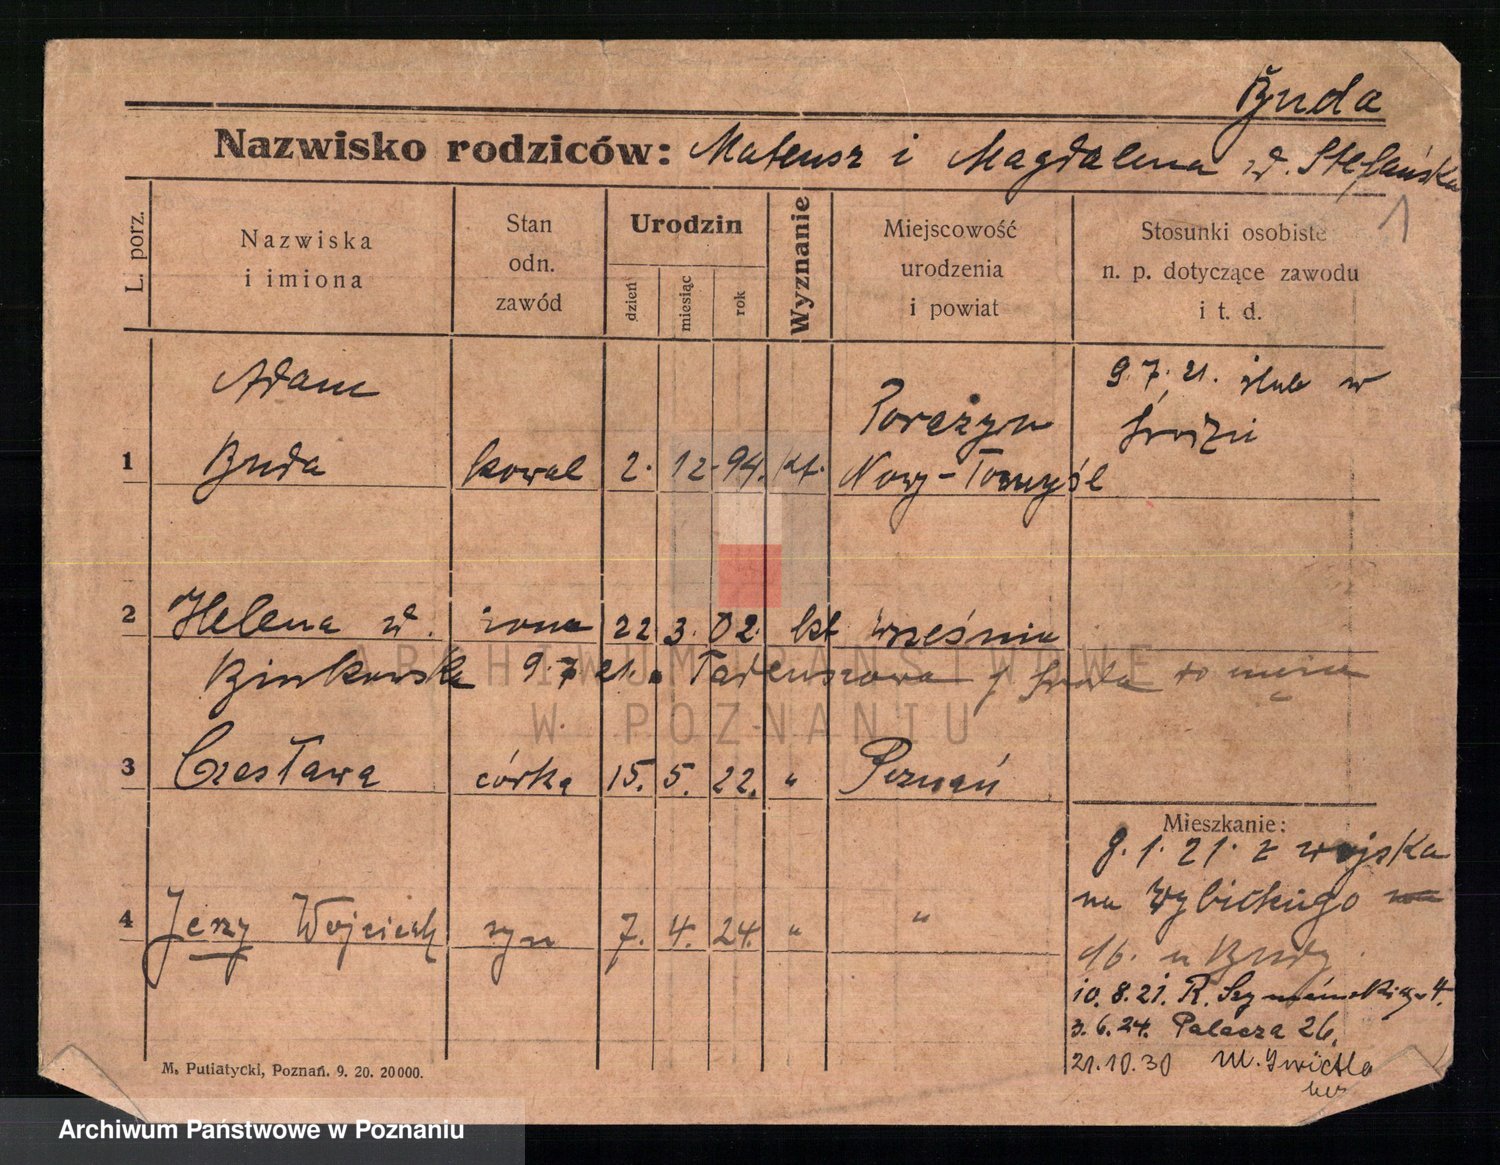 Buda
Nazwisko rodziców: Mateusz i Magdalena z d. Stefańska
1
L. porz.
Nazwiska
i imiona
Stan
odn.
zawód
Urodzin
dzień
miesiąc
rok
Wyznanie
Miejscowość
urodzenia
i powiat
Stosunki osobiste
n. p. dotyczące zawodu
i t. d.
Adam
9.7.21. ślub w
Porażyn
Środzie
1 Buda kowal 2. 12. 94. kt. Nowy-Tomyśl
2 Helena z d. żona 22 3. 02. kt Września
Binkowska 9.7.21. Tadeuszowa Środa do męża
3 Czesława córka 15. 5. 22. " Poznań
Mieszkanie:
9.1.21. z wojska
na Wybickiego
4 Jerzy Wojciech syn 7. 4. 24. " "
16. u Budy
10.8.21. R. Szymańskiego 4.
3.6.24. Palacza 26.
21.10.30 M.
M. Putiatycki, Poznań. 9. 20. 20000.
ARCHIWUM PAŃSTWOWE
W POZNANIU
Archiwum Państwowe w Poznaniu